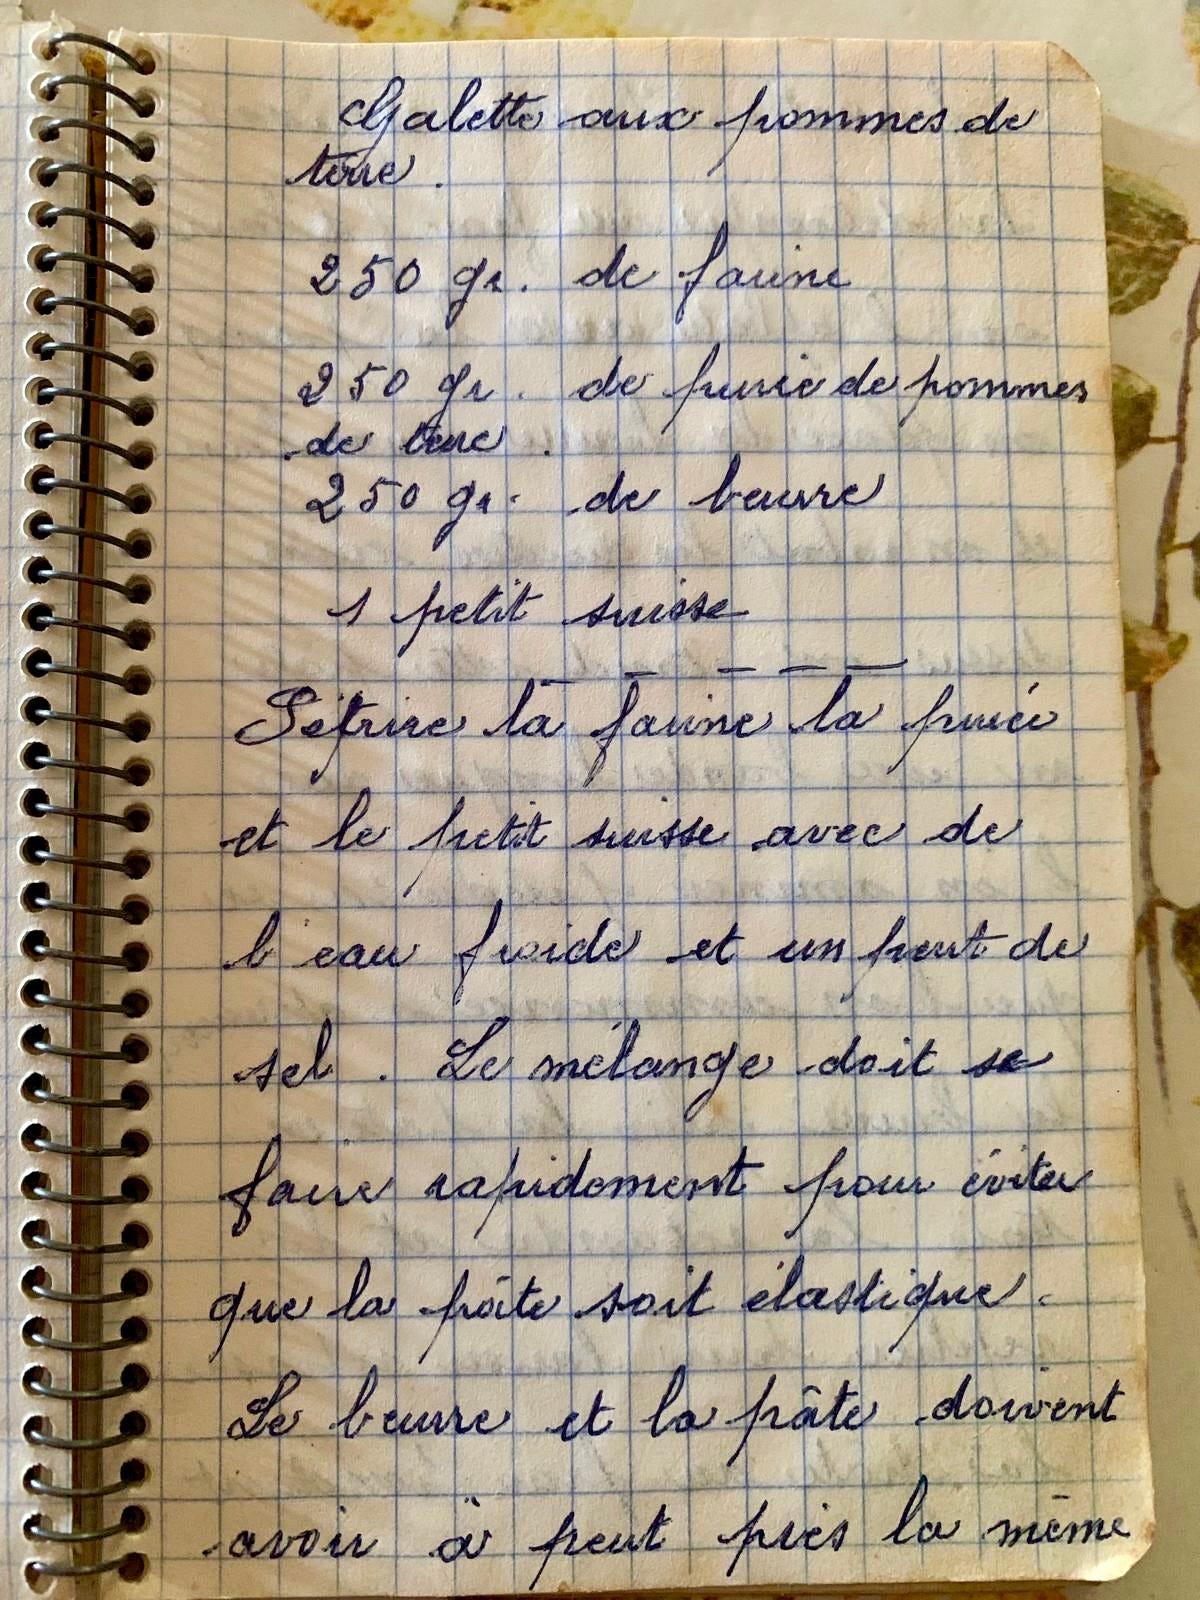 Galette aux pommes de
terre.
250 gr. de farine
250 gr. de purée de pommes
de terre.
250 gr. de beurre
1 petit suisse
Pétrire la farine la purée
et le petit suisse avec de
l'eau froide et un peut de
sel. Le mélange doit se
faire rapidement pour éviter
que la pâte soit élastique.
Le beurre et la pâte doivent
avoir à peut près la même